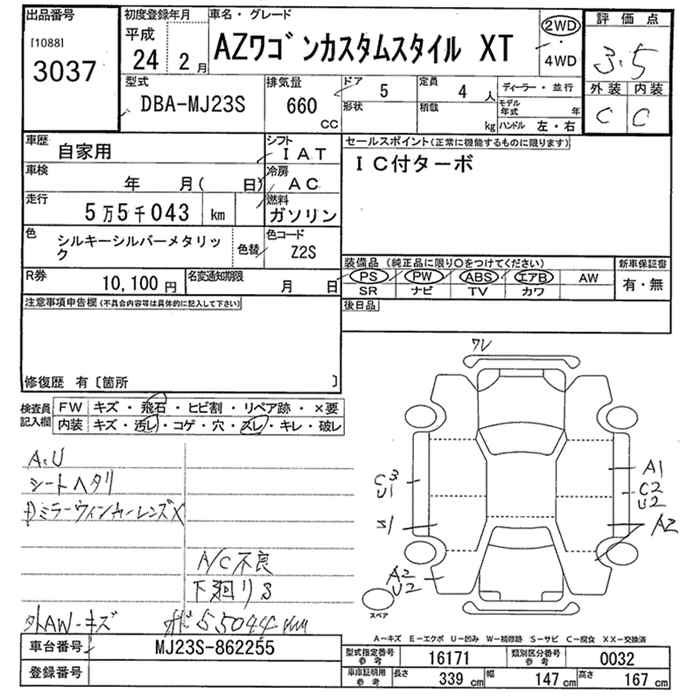 出品番号
[1088]
3037
初度登録年月
平成
24 2月
車名・グレード
AZワゴンカスタムスタイル XT
2WD
・
4WD
評価点
3.5
外装 内装
C C
型式
DBA-MJ23S
排気量
660
CC
ドア 5
形状
定員 4 人
積載 kg
ディーラー・並行
モデル年式 年
ハンドル 左・右
車歴
自家用
シフト
IAT
車検
年 月( 日)
冷房
AC
走行
5万5千043 km
燃料
ガソリン
色
シルキーシルバーメタリック
色替
色コード
Z2S
R券
10,100円
名変通知期限
月 日
セールスポイント(正常に機能するものに限ります)
IC付ターボ
装備品(純正品に限り○をつけてください)
PS PW ABS エアB AW
SR ナビ TV カワ
新車保証書
有・無
後日品
注意事項申告欄(不具合内容等は具体的に記入して下さい)
修復歴 有〔箇所 〕
検査員記入欄
FW キズ・飛石・ヒビ割・リペア跡・×要
内装 キズ・汚レ・コゲ・穴・スレ・キレ・破レ
A.U
シートヘタリ
ミラーウィンカーレンズX
A/C不良
下廻りS
外AW-キズ
55044km
ワレ
C3
U1
S1
A2
U2
A1
C2
U2
A2
スペア
A-キズ E-エクボ U-凹み W-補修跡 S-サビ C-腐食 XX-交換済
車台番号
MJ23S-862255
登録番号
型式指定番号
参考
16171
類別区分番号
参考
0032
車庫証明用
参考
長さ 339 cm
幅 147 cm
高さ 167 cm